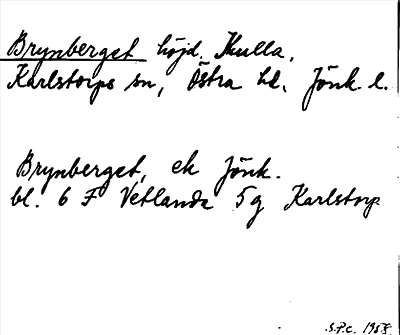 Brynberget höjd, Kulla,
Karlstorps sn, Östra hd. Jönk. l.
Brynberget, ek Jönk.
bl. 6 F Vetlanda 5g Karlstorp
S.P.C. 1958.